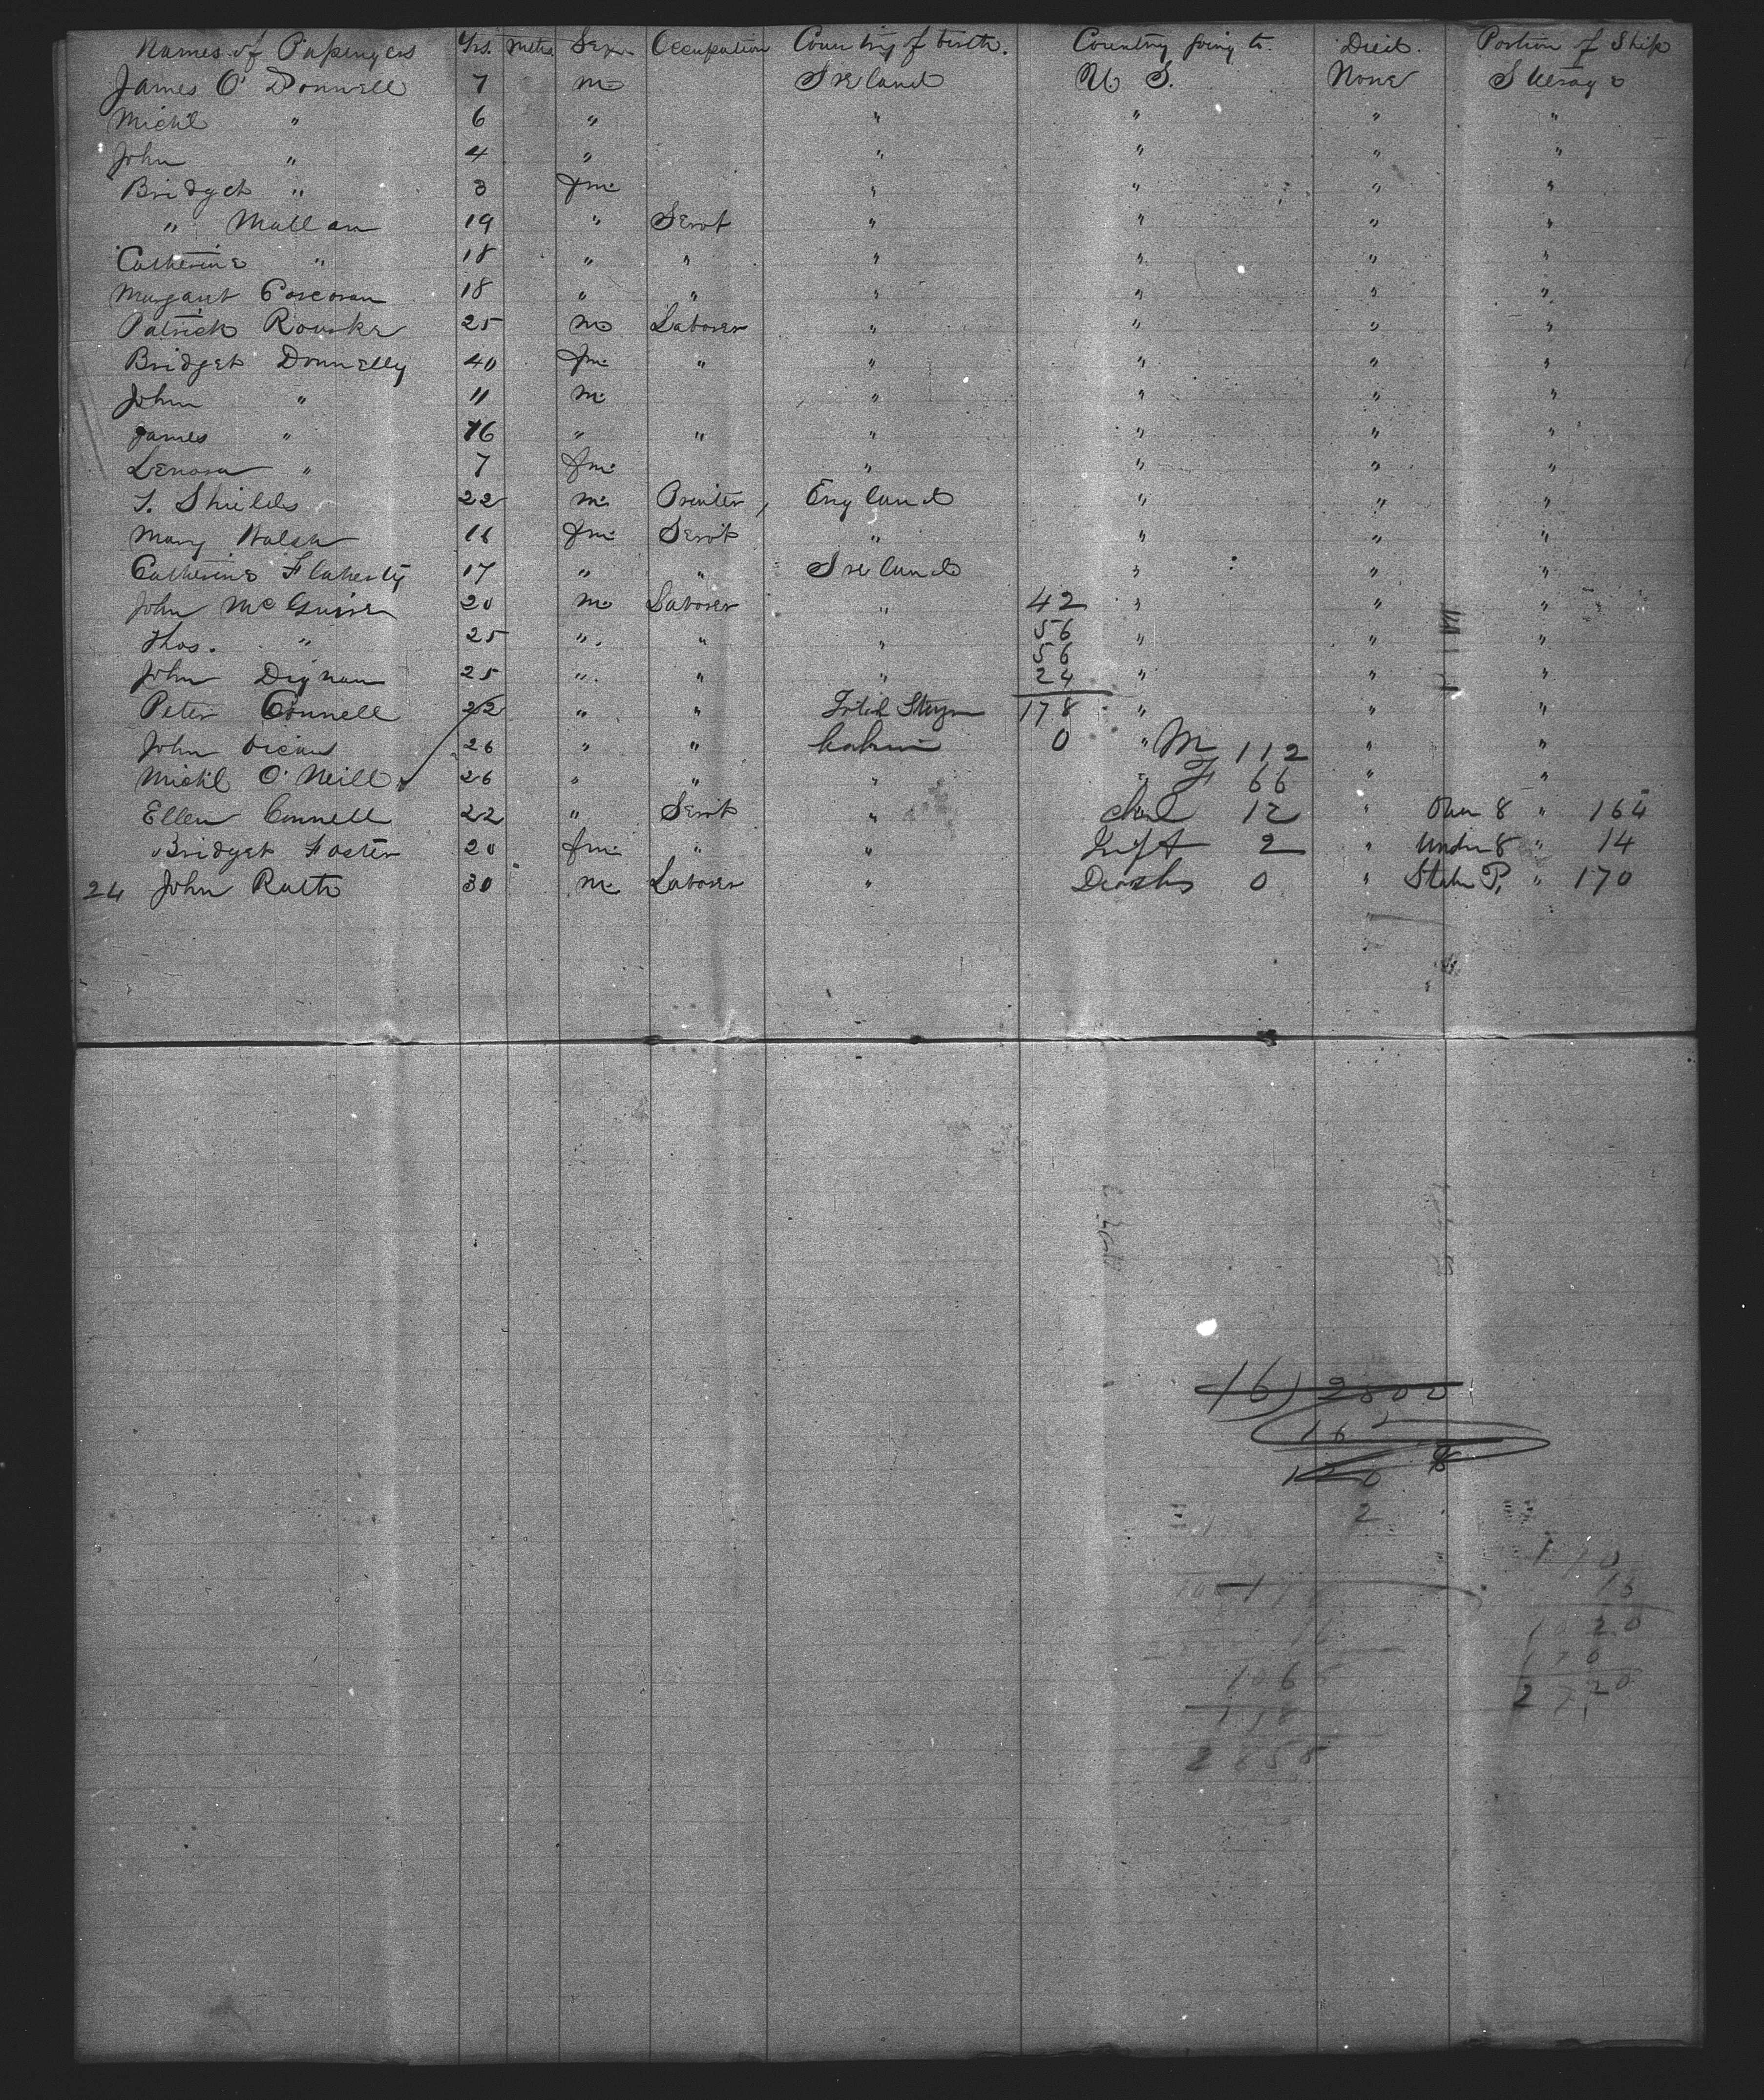 Names of Passengers Yrs. Mths Sex Occupation Country of birth. Country going to. Died. Portion of Ship
James O'Donnell 7 m Ireland U S. None Steerage
Michl " 6 " " " " "
John " 4 " " " " "
Bridget " 3 fm " " " "
" Mallan 19 " Servt " " " "
Catherine " 18 " " " " " "
Margaret Corcoran 18 " " " " " "
Patrick Rourke 25 m Laborer " " " "
Bridget Donnelly 40 fm " " " " "
John " 11 m " " " "
James " 16 " " " " " "
Lenora " 7 fm " " " "
T. Shields 22 m Printer, England " " "
Mary Walsh 16 fm Servt " " " "
Catherine Flaherty 17 " " Ireland " " "
John McGuire 20 m Laborer " 42 " " "
Thos. " 25 " " " 56 " " "
56
John Dignan 25 " " " 24 " " "
Peter Connell 22 " " Total Steegn 178 " " "
John 26 " " Cabin 0 " M 112 " "
Michl O'Neill 26 " " " " F 66 " "
Ellen Connell 22 " Servt " Chil 12 " Over 8 " 164
Bridget Foster 20 fm " " Inft 2 " Under 8 " 14
24 John Rath 30 m Laborer " Deaths 0 " State P. " 170
16) 2802
16
2
170
16
1020
170
2720
16
106
2858